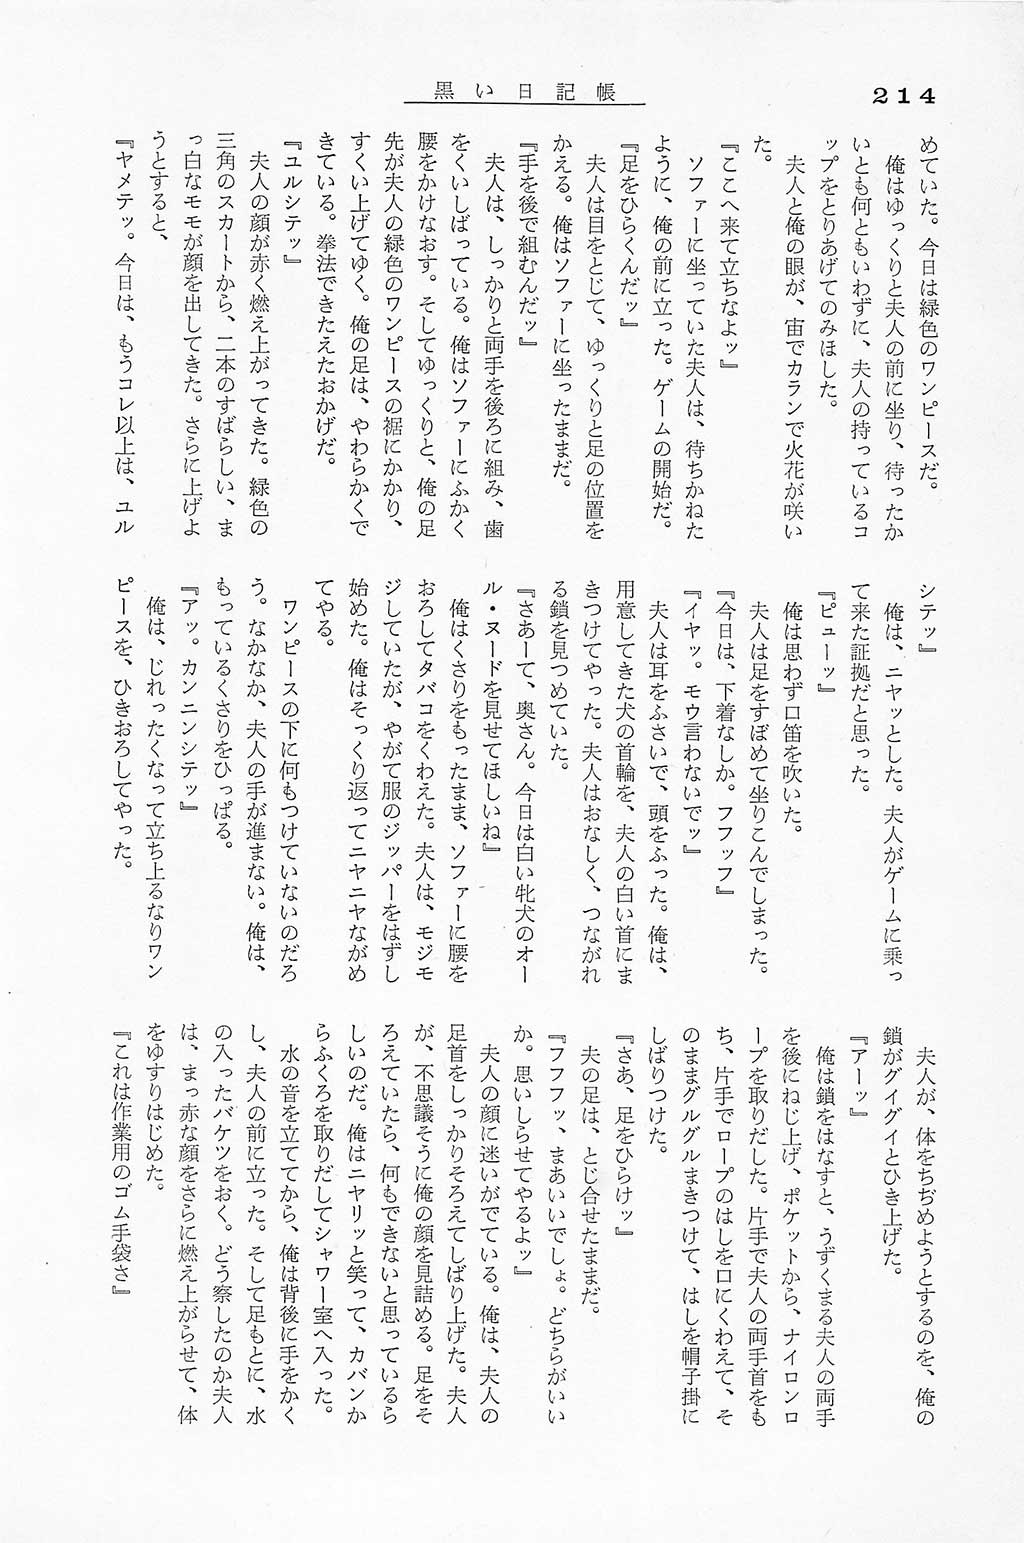 214
黒い日記帳
めていた。今日は緑色のワンピースだ。
俺はゆっくりと夫人の前に坐り、待ったか
いとも何ともいわずに、夫人の持っているコ
ップをとりあげてのみほした。
夫人と俺の眼が、宙でカランで火花が咲い
た。
『ここへ来て立ちなよッ』
ソファーに坐っていた夫人は、待ちかねた
ように、俺の前に立った。ゲームの開始だ。
『足をひらくんだッ』
夫人は目をとじて、ゆっくりと足の位置を
かえる。俺はソファーに坐ったままだ。
『手を後で組むんだッ』
夫人は、しっかりと両手を後ろに組み、歯
をくいしばっている。俺はソファーにふかく
腰をかけなおす。そしてゆっくりと、俺の足
先が夫人の緑色のワンピースの裾にかかり、
すくい上げてゆく。俺の足は、やわらかくで
きている。拳法できたえたおかげだ。
『ユルシテッ』
夫人の顔が赤く燃え上がってきた。緑色の
三角のスカートから、二本のすばらしい、ま
っ白なモモが顔を出してきた。さらに上げよ
うとすると、
『ヤメテッ。今日は、もうコレ以上は、ユル
シテッ』
俺は、ニヤッとした。夫人がゲームに乗っ
て来た証拠だと思った。
『ピューッ』
俺は思わず口笛を吹いた。
夫人は足をすぼめて坐りこんでしまった。
『今日は、下着なしか。フフッフ』
『イヤッ。モウ言わないでッ』
夫人は耳をふさいで、頭をふった。俺は、
用意してきた犬の首輪を、夫人の白い首にま
きつけてやった。夫人はおなしく、つながれ
る鎖を見つめていた。
『さあーて、奥さん。今日は白い牝犬のオー
ル・ヌードを見せてほしいね』
俺はくさりをもったまま、ソファーに腰を
おろしてタバコをくわえた。夫人は、モジモ
ジしていたが、やがて服のジッパーをはずし
始めた。俺はそっくり返ってニヤニヤながめ
てやる。
ワンピースの下に何もつけていないのだろ
う。なかなか、夫人の手が進まない。俺は、
もっているくさりをひっぱる。
『アッ。カンニンシテッ』
俺は、じれったくなって立ち上るなりワン
ピースを、ひきおろしてやった。
夫人が、体をちぢめようとするのを、俺の
鎖がグイグイとひき上げた。
『アーッ』
俺は鎖をはなすと、うずくまる夫人の両手
を後にねじ上げ、ポケットから、ナイロンロ
ープを取りだした。片手で夫人の両手首をも
ち、片手でロープのはしを口にくわえて、そ
のままグルグルまきつけて、はしを帽子掛に
しばりつけた。
『さあ、足をひらけッ』
夫の足は、とじ合せたままだ。
『フフフッ、まあいいでしょ。どちらがいい
か。思いしらせてやるよッ』
夫人の顔に迷いがでている。俺は、夫人の
足首をしっかりそろえてしばり上げた。夫人
が、不思議そうに俺の顔を見詰める。足をそ
ろえていたら、何もできないと思っているら
しいのだ。俺はニヤリッと笑って、カバンか
らふくろを取りだしてシャワー室へ入った。
水の音を立ててから、俺は背後に手をかく
し、夫人の前に立った。そして足もとに、水
の入ったバケツをおく。どう察したのか夫人
は、まっ赤な顔をさらに燃え上がらせて、体
をゆすりはじめた。
『これは作業用のゴム手袋さ』